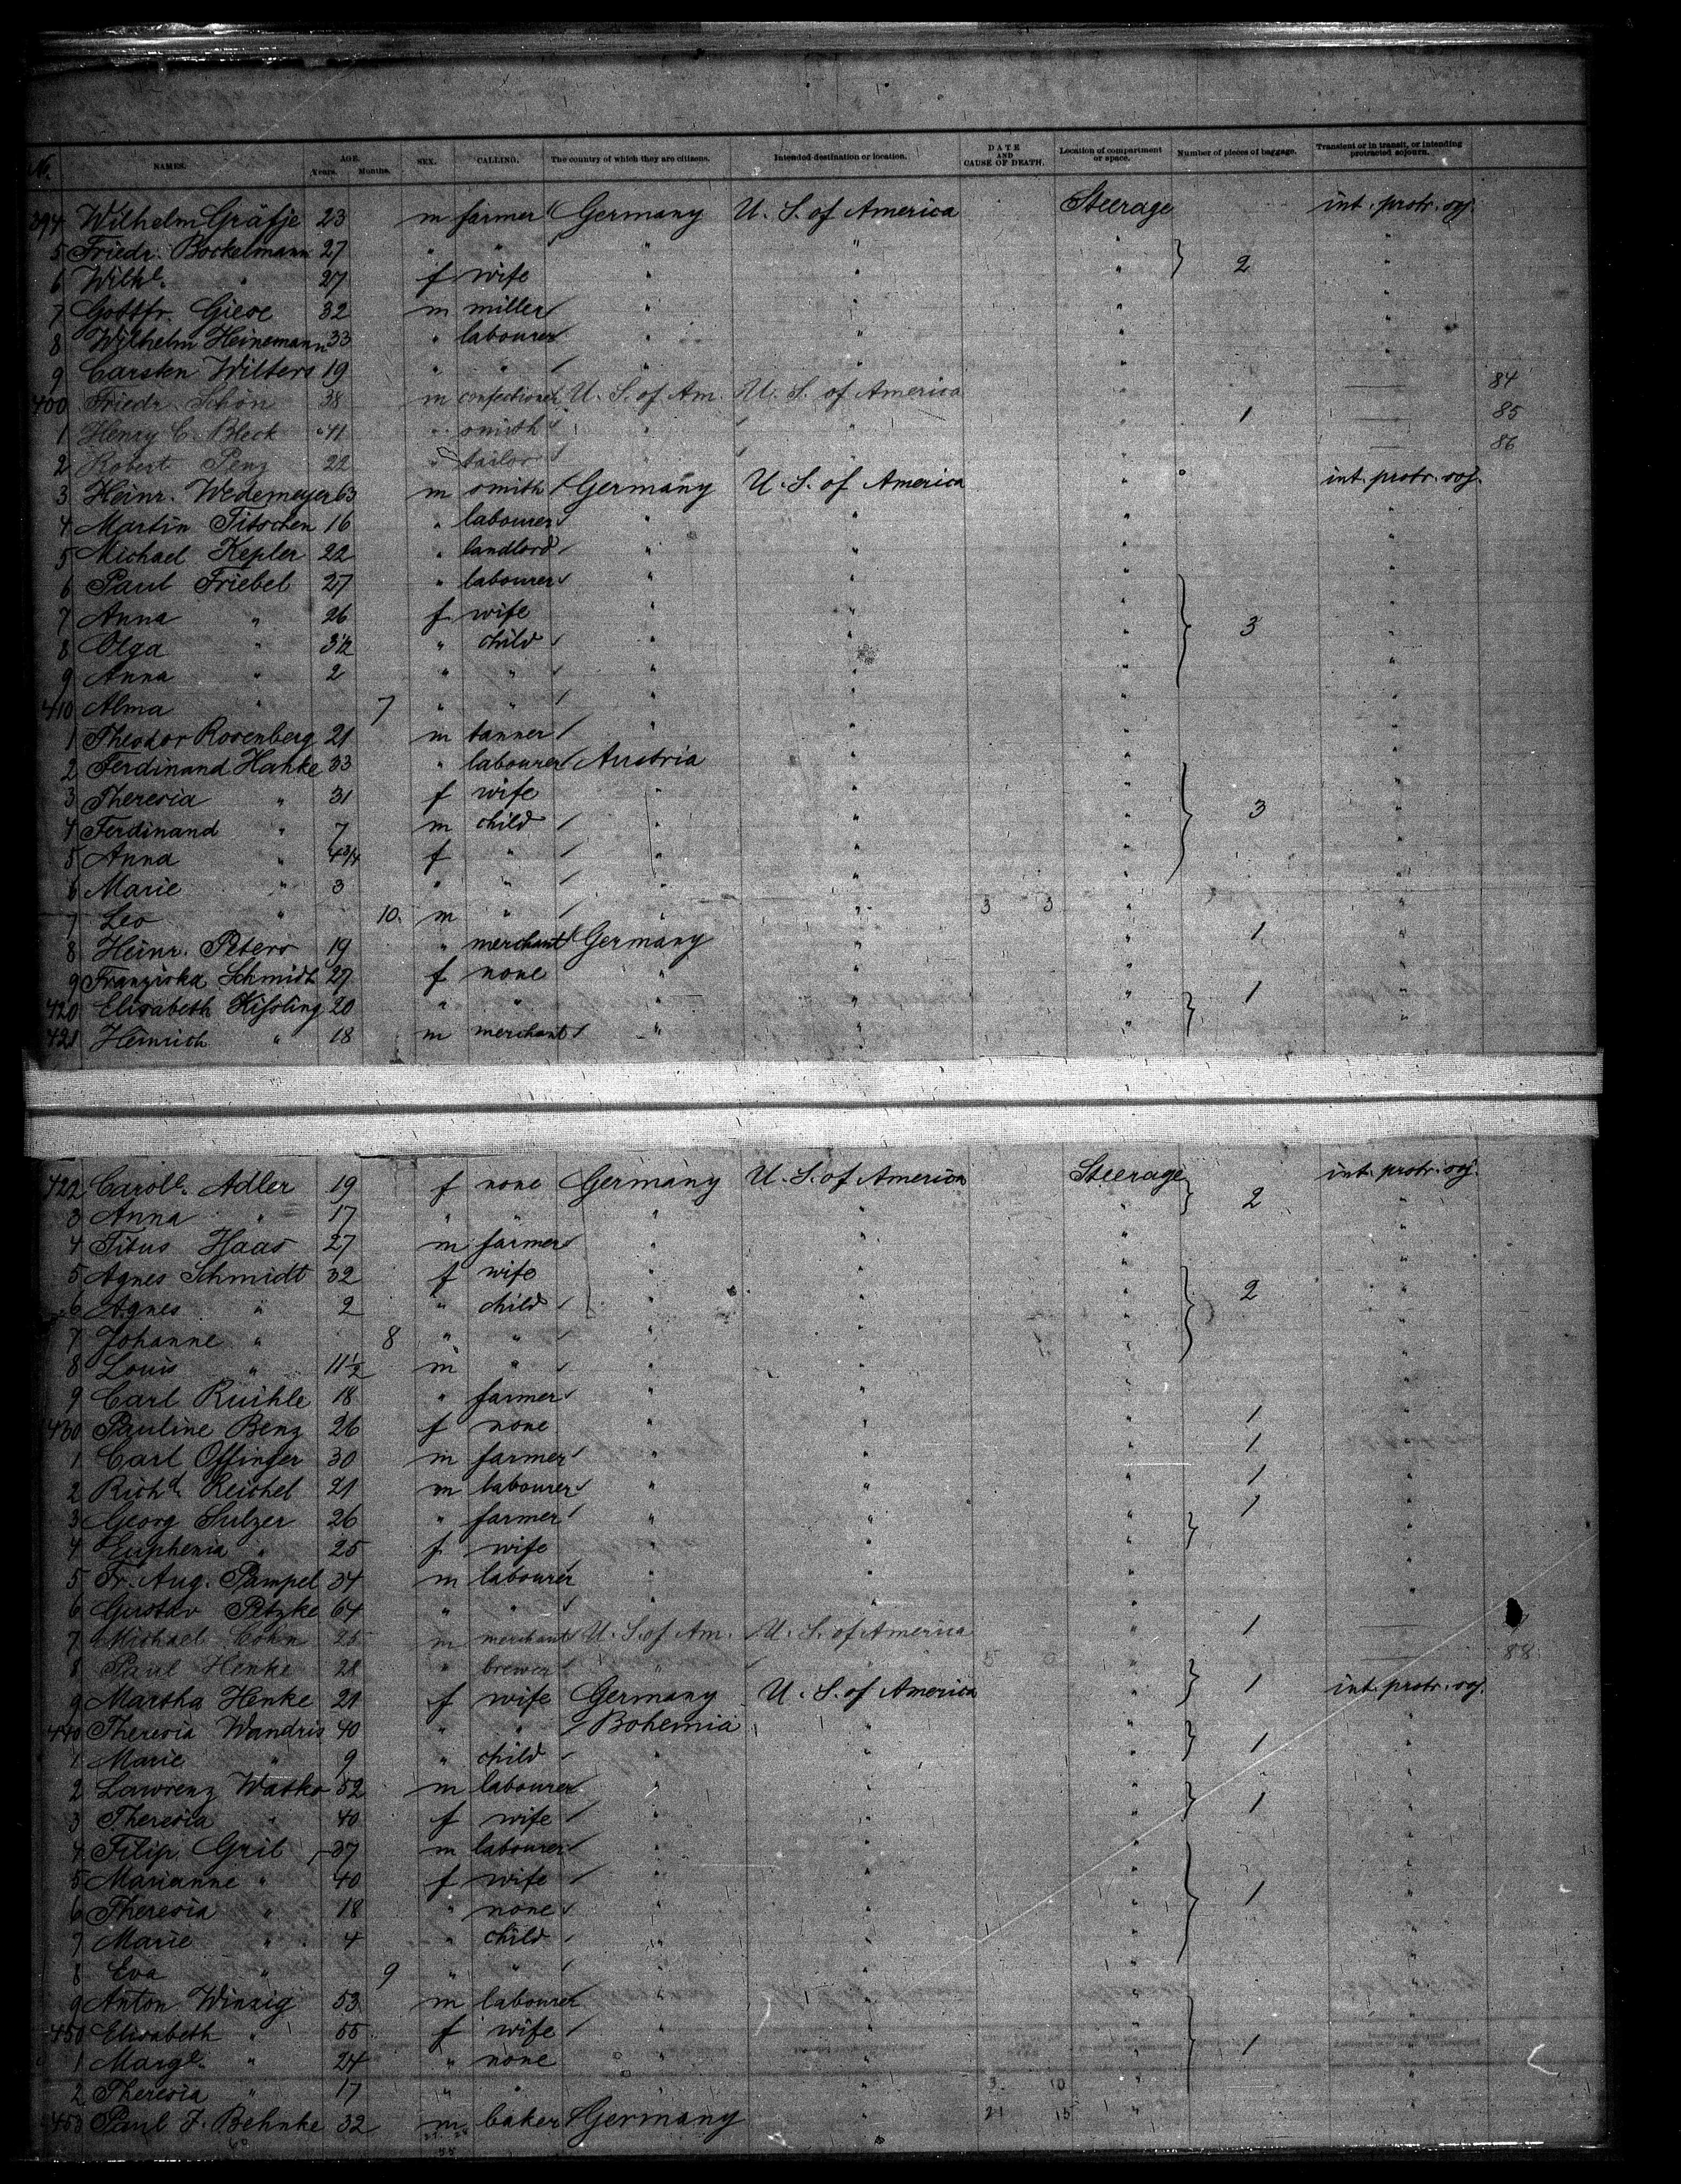 No. NAMES. AGE. Years. Months. SEX. CALLING. The country of which they are citizens. Intended destination or location. DATE AND CAUSE OF DEATH. Location of compartment or space. Number of pieces of baggage. Transient or in transit, or intending protracted sojourn.
394 Wilhelm Gräfje 23 m farmer Germany U. S. of America Steerage int. protr. soj.
5 Friedr. Bockelmann 27 " " " " " } 2 "
6 Wilhe. " 27 f wife " " " "
7 Gottfr. Giese 32 m miller " " " "
8 Wilhelm Heinemann 33 " labourer " " " "
9 Carsten Wilters 19 " " " " " "
400 Friedr. Schön 38 m confectioner U. S. of Am. U. S. of America " — 84
1 Henry C. Bleck 41 " smith " " " 1 — 85
2 Robert Penz 22 " tailor " " " — 86
3 Heinr. Wedemeyer 63 m smith Germany U. S. of America " int. protr. soj.
4 Martin Titschen 16 " labourer " " " "
5 Michael Kepler 22 " landlord " " " "
6 Paul Friebel 27 " labourer " " " "
7 Anna " 26 f wife " " " } 3 "
8 Olga " 3½ " child " " " "
9 Anna " 2 " " " " " "
410 Alma " 7 " " " " " "
1 Theodor Rosenberg 21 m tanner " " " "
2 Ferdinand Hahke 33 " labourer Austria " " "
3 Theresia " 31 f wife " " " } 3 "
4 Ferdinand " 7 m child " " " "
5 Anna " 4¾ f " " " " "
6 Marie " 3 " " " " " "
7 Leo " 10 m " " " 3 3 " "
8 Heinr. Peters 19 " merchant Germany " " 1 "
9 Franziska Schmidt 27 f none " " " "
420 Elisabeth Kißling 20 " " " " " } 1 "
421 Heinrich " 18 m merchant " " " "
422 Carole. Adler 19 f none Germany U. S. of America Steerage } 2 int. protr. soj.
3 Anna " 17 " " " " " "
4 Titus Haas 27 m farmer " " " "
5 Agnes Schmidt 32 f wife " " " } 2 "
6 Agnes " 2 " child " " " "
7 Johanne " 8 " " " " " "
8 Louis " 11½ m " " " " "
9 Carl Ruihle 18 " farmer " " " "
430 Pauline Benz 26 f none " " " 1 "
1 Carl Offinger 30 m farmer " " " 1 "
2 Richd. Reichel 21 m labourer " " " 1 "
3 Georg Sulzer 26 " farmer " " " } 1 "
4 Euphemia " 25 f wife " " " "
5 Fr. Aug. Pampel 34 m labourer " " " "
6 Gustav Petzke 64 " " " " " "
7 Michael Cohn 25 m merchant U. S. of Am. U. S. of America " 1 —
8 Paul Henke 28 " brewer " " 5 0 " — 88
9 Martha Henke 21 f wife Germany U. S. of America " } 1 int. protr. soj.
440 Theresia Wandris 40 " " Bohemia " " } 1 "
1 Marie " 9 " child " " " "
2 Lawrenz Watko 52 m labourer " " " } 1 "
3 Theresia " 40 f wife " " " "
4 Filip Gril 37 m labourer " " " "
5 Marianne " 40 f wife " " " } 1 "
6 Theresia " 18 " none " " " "
7 Marie " 4 " child " " " "
8 Eva " 9 " " " " " "
9 Anton Winzig 53 m labourer " " " "
450 Elisabeth " 55 f wife " " " } 1 "
1 Marge. " 24 " none " " " "
2 Theresia " 17 " " " " 3 10 " "
453 Paul F. Behnke 32 m baker Germany " 21 15 "